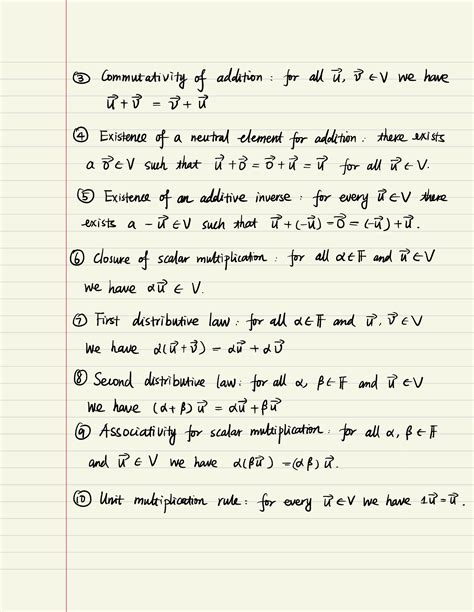 ③ Commutativity of addition : for all u⃗, v⃗ ∈ V we have
u⃗ + v⃗ = v⃗ + u⃗
④ Existence of a neutral element for addition : there exists
a o⃗ ∈ V such that u⃗ + o⃗ = o⃗ + u⃗ = u⃗ for all u⃗ ∈ V.
⑤ Existence of an additive inverse : for every u⃗ ∈ V there
exists a -u⃗ ∈ V such that u⃗ + (-u⃗) = o⃗ = (-u⃗) + u⃗.
⑥ Closure of scalar multiplication : for all α ∈ 𝔽 and u⃗ ∈ V
we have αu⃗ ∈ V.
⑦ First distributive law : for all α ∈ 𝔽 and u⃗, v⃗ ∈ V
we have α(u⃗ + v⃗) = αu⃗ + αv⃗
⑧ Second distributive law : for all α, β ∈ 𝔽 and u⃗ ∈ V
we have (α + β)u⃗ = αu⃗ + βu⃗
⑨ Associativity for scalar multiplication : for all α, β ∈ 𝔽
and u⃗ ∈ V we have α(βu⃗) = (αβ)u⃗.
⑩ Unit multiplication rule : for every u⃗ ∈ V we have 1u⃗ = u⃗.